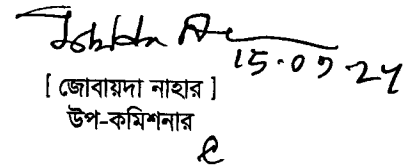 15.07 24
[ জোবায়দা নাহার ]
উপ-কমিশনার